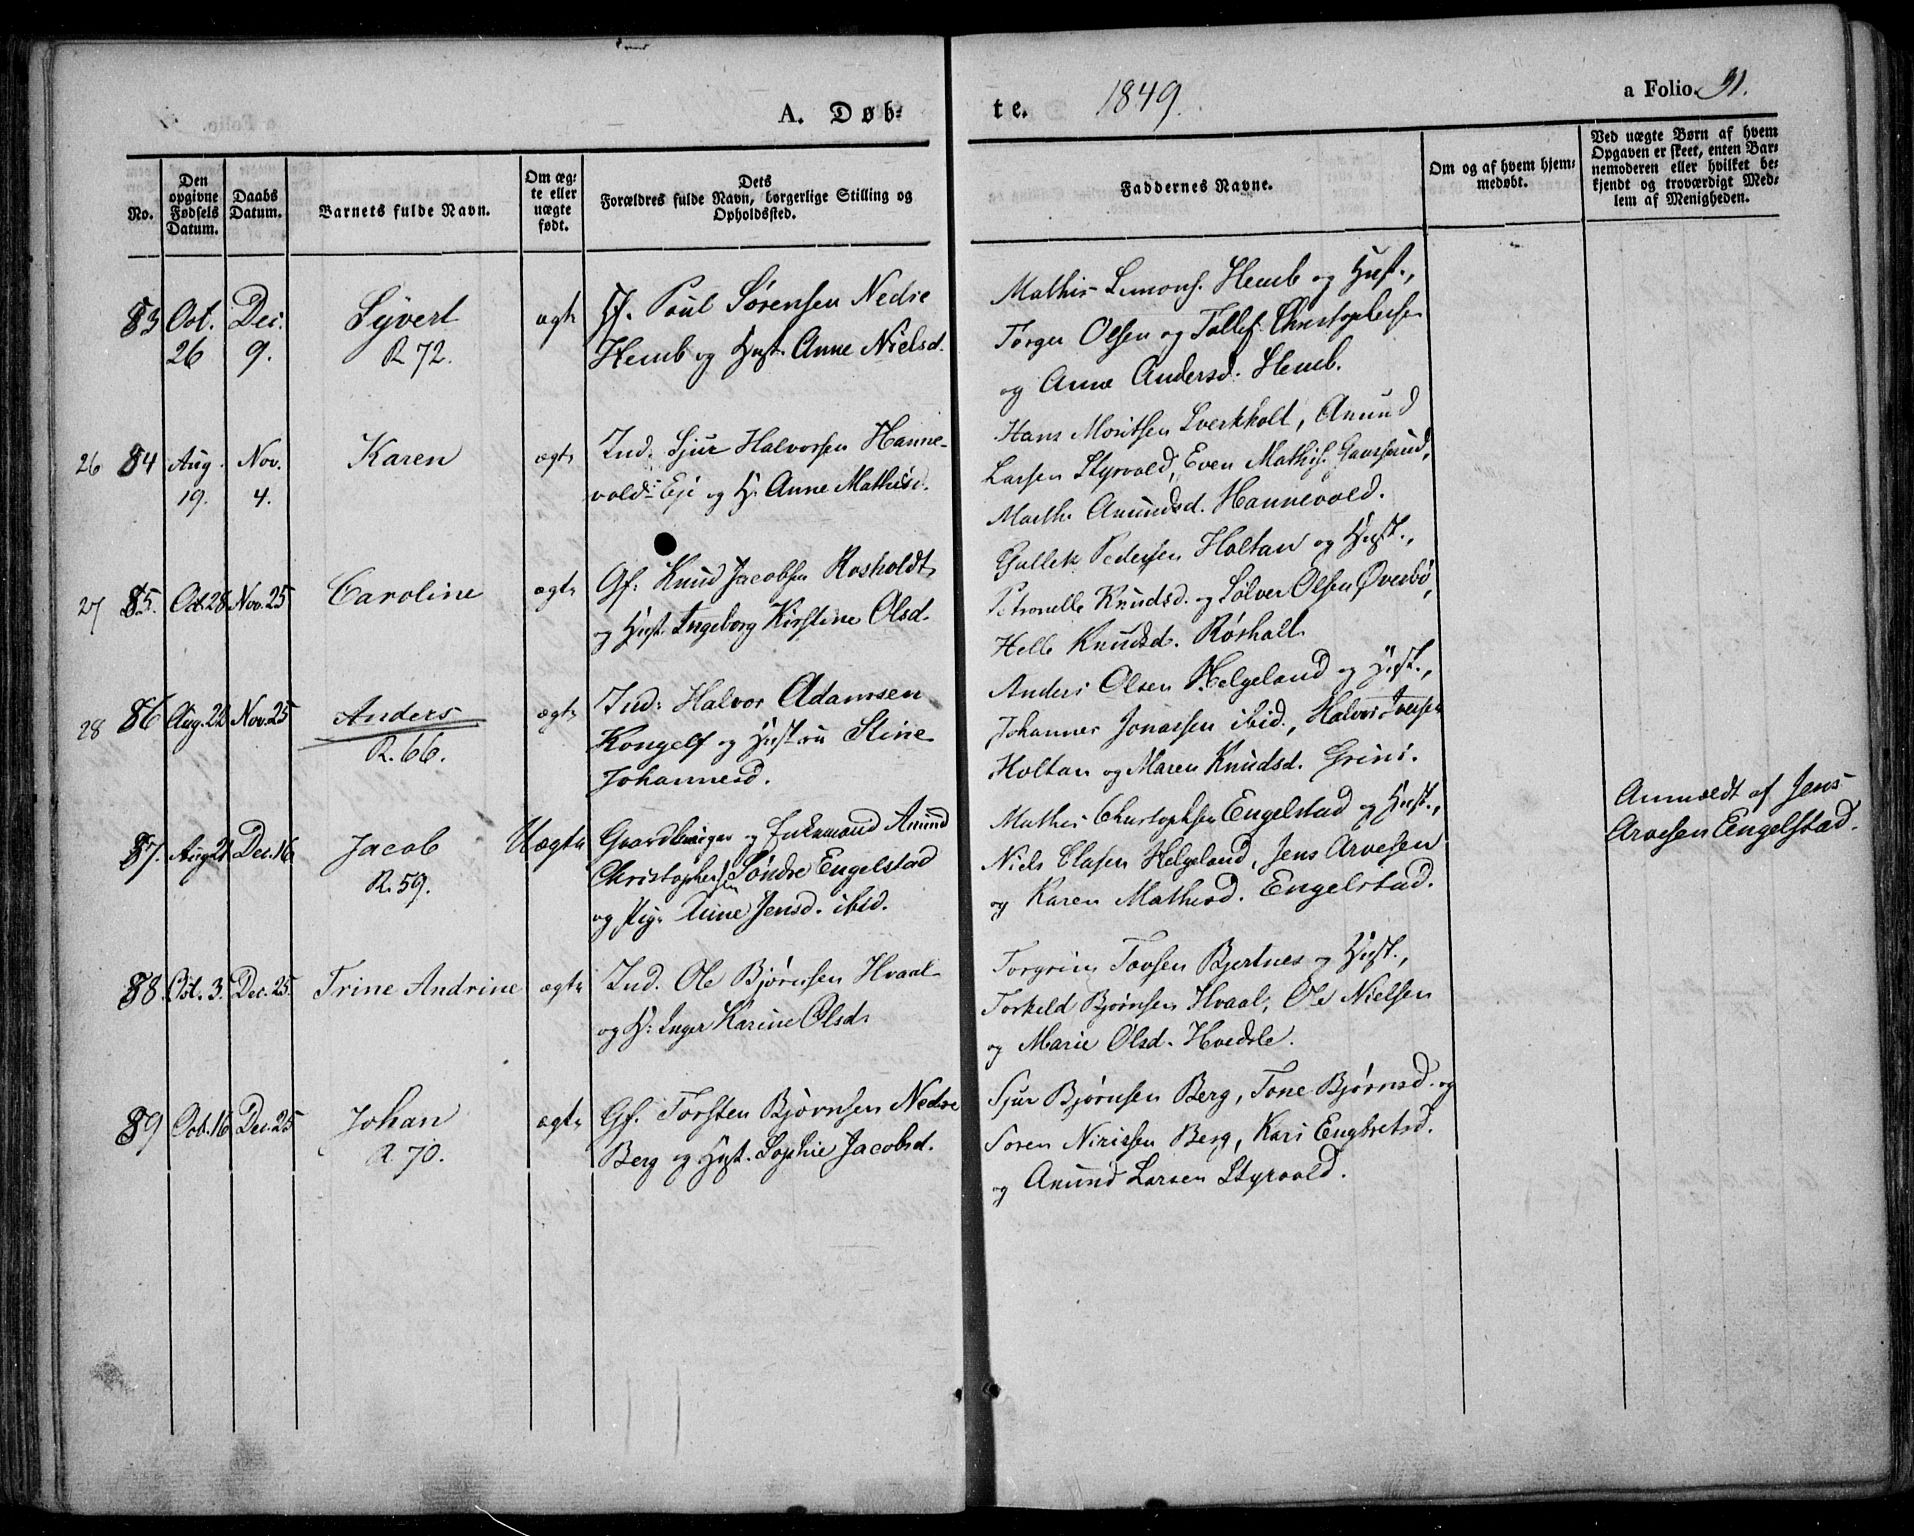 A. Døb-
te.
1849.
a Folio. 31.
No.
Den opgivne Fødsels Datum.
Daabs Datum.
Barnets fulde Navn.
Om ægte eller uægte født.
Dets
Forældres fulde Navn, borgerlige Stilling og
Opholdssted.
Faddernes Navne.
Om og af hvem hjem-
medøbt.
Ved uægte Børn af hvem
Opgaven er skeet, enten Bar-
nemoderen eller hvilket be-
kjendt og troværdigt Med-
lem af Menigheden.
83 Oct. 26 Dec. 9. Syvert R 72. ægte
Gf. Poul Sørensen Nedre
Hemb og Hust. Anne Nielsd.
Mathis Simons. Hemb og Hust.,
Torger Olsen og Tollef Christophersen
og Anne Andersd. Hemb.
26 84 Aug. 19. Nov. 4. Karen ægte
Ind. Sjur Halvorsen Hanne-
vold-Eje og H. Anne Mathisd.
Hans Moritsen Sverkholt, Anund
Larsen Styrvold, Even Mathis.
Marthe Anundsd. Hannevold.
27 85. Oct 28 Nov. 25 Caroline ægte
Gf. Knud Jacobsen Rosholdt
og Hust. Ingeborg Kirstine Olsd.
Gullek Pedersen Holtan og Hust.,
Petronelle Knudsd. og Sølver Olsen Øverbø,
Helle Knudsd. Rosholt.
28 86 Aug. 22 Nov. 25 Anders R. 66. ægte
Ind: Halvor Adamsen
Kongelf og Hustru Stine
Johannesd.
Anders Olsen Helgeland og Hust.,
Johannes Jonassen ibid., Halvor Iversen
Holtan og Maren Knudsd. Grini.
87. Aug 21 Dec. 16 Jacob R. 59. Uægte
Gaardbruger og Enkemand Anund
Christophersen Søndre Engelstad
og Pige Anne Jensd. ibid.
Mathis Christophsen Engelstad og Hust.,
Niels Olasen Helgeland, Jens Arvesen
og Karen Mathisd. Engelstad.
Anmeldt af Jens
Arvesen Engelstad.
88. Oct. 3. Dec. 25. Trine Andrine ægte
Ind. Ole Bjørnsen Hvaal
og H: Inger Karine Olsd.
Torgrim Tovsen Bjertnes og Hust.,
Torkeld Bjørnsen Hvaal, Ole Nielsen
og Marie Olsd. Hvedsle.
89 Oct. 16 Dec. 25 Johan R. 70. ægte
Gf. Torsten Bjørnsen Nedre
Berg og Hust. Sophie Jacobsd.
Sjur Bjørnsen Berg, Tone Bjørnsd. og
Søren Nirissen Berg, Kari Engbretsd.
og Anund Larsen Styrvold.